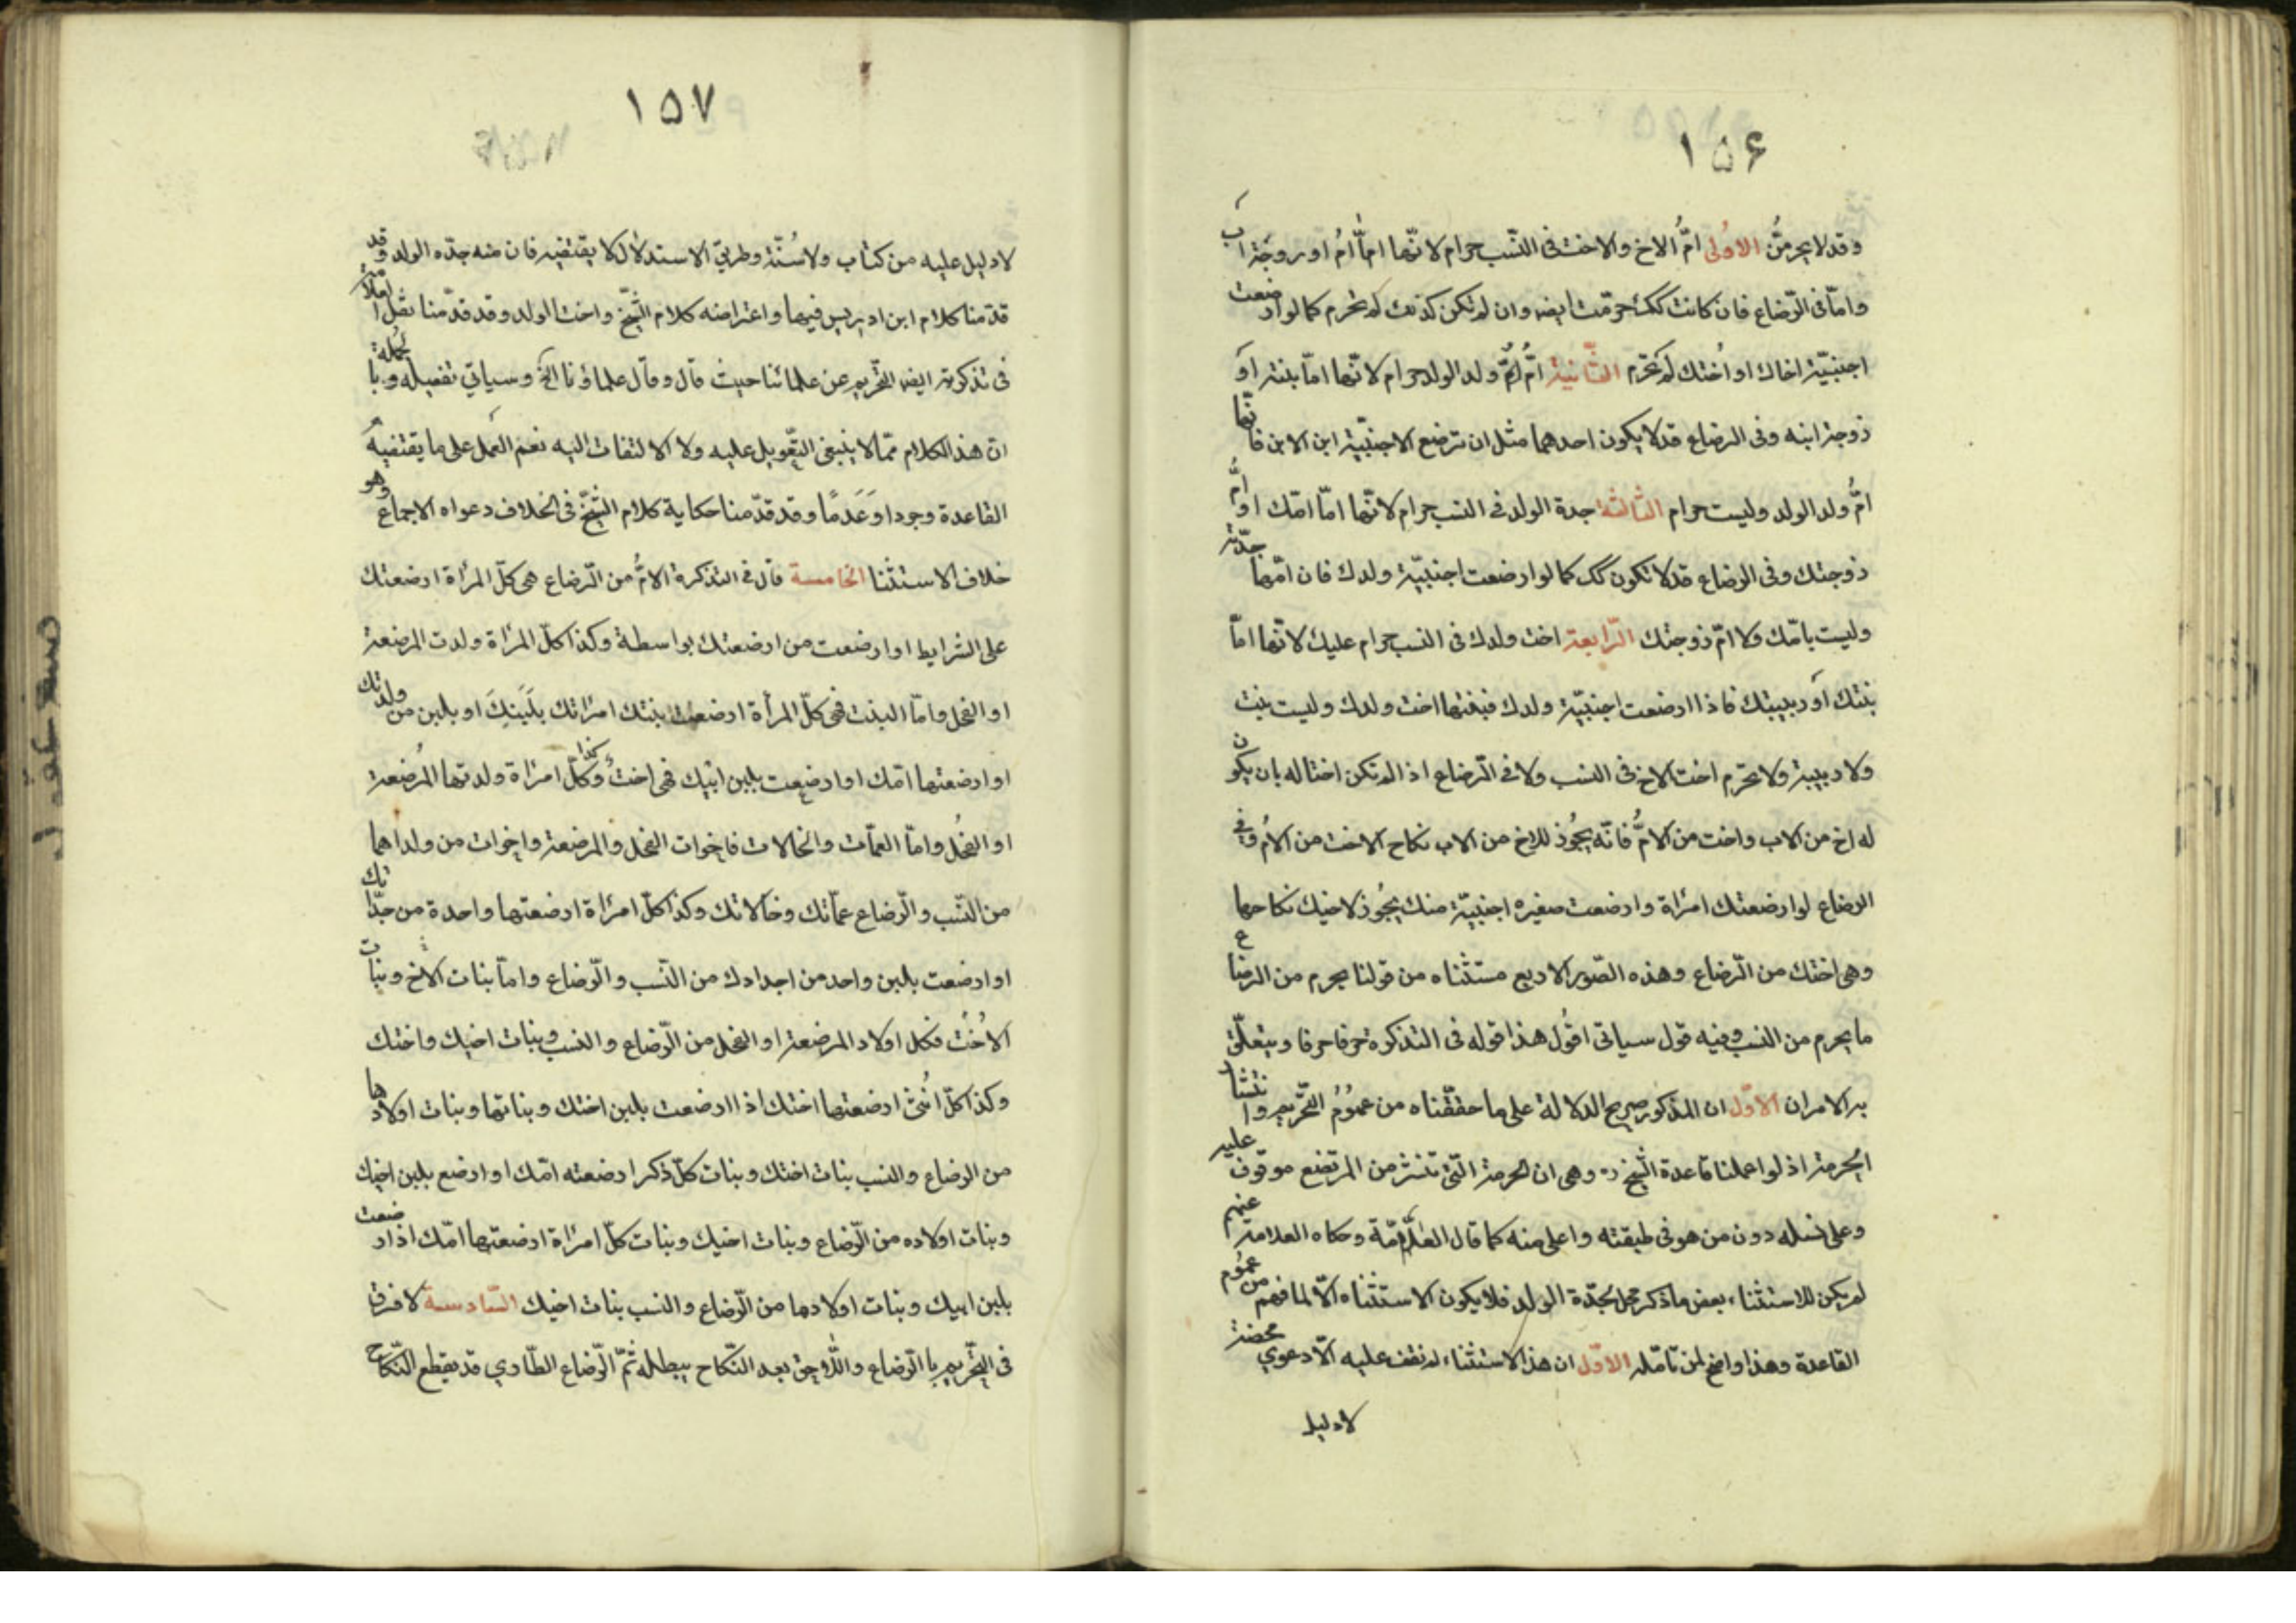 ١٥۶
وقد لا يحرمنّ الاولى امُّ الاخ والاخت فى النّسب حرام لانّها امّا امُ او زوجة اب
وامّا فى الرّضاع فان كانت كك حرمت ايضه وان لم تكن كذلك لم تحرم كما لو ارضعت
اجنبيّة اخاك او اُختك لم تحرم الثّانية امُّ ولد الولد حرام لانّها امّا بنته او
زوجة ابنه وفى الرضاع قد لا يكون احدهما مثل ان ترضع الاجنبيّة ابن الابن فانّها
امُّ ولد الولد وليست حرام الثالثة جدة الولد فى النسب حرام لانّها امّا امّك او امُّ
زوجتك وفى الرضاع قد لا تكون كك كما لو ارضعت اجنبيّة ولدك فان امّها جدّته
وليست بامّك ولا امّ زوجتك الرّابعة اخت ولدك فى النسب حرام عليك لانّها امّا
بنتك او ربيبتك فاذا ارضعت اجنبيّة ولدك فبنتها اخت ولدك وليست بنت
ولا ربيبة ولا تحرم اخت الاخ فى النسب ولا فى الرّضاع اذا لم تكن اختا له بان يكون
له اخ من الاب واخت من الامُّ فانّه يجُوز للاخ من الاب نكاح الاخت من الاُم وفى
الرضاع لو ارضعتك امرَاة وارضعت صغيره اجنبيّة منك يجُوز لاخيك نكاحها
وهى اختك من الرّضاع وهذه الصّور الاربع مستثناه من قولنا يحرم من الرضاع
ما يحرم من النسب وفيه قول سياتى اقُول هذا قوله فى التذكرة حرفا حرفا ويتعلّق
به الامران الاوّل ان المذكور صريح الدلالة على ما حققّناه من عمُوُم التحّريم وانتشار
الحرمة اذ لو اعملنا قاعدة الشّيخ ره وهى ان الحرمة التّى تنتشر من المرتضع موقوف عليه
وعلى نسله دون من هو فى طبقته واعلى منه كما قال العلّامّة وحكاه العلامة عنهم
لم يكن للاستثناء بعض ما ذكر محل كجدّة الولد فلا يكون الاستثناء الّا لما فهم من عمُوم
القاعدة وهذا واضح لمن تامّله الاوّل ان هذا الاستثناء لم نقف عليه الّا دعوي محضة
لا دليل
١٥٧
لا دليل عليه من كتاب ولا سُنّة وطريق الاستدلال لا يقتضيه فان منه جدّه الولد وقد
قدّمنا كلام ابن ادريس فيها واعتراضه كلام الشّيخ واخت الولد وقد قدّمنا نقل
فى تذكرته ايضه التّحريم عن علمائنا حيث قال وقال علماؤنا الخ وسياتي تفصيله وبالجُملة
انّ هذا الكلام ممّا لا ينبغى التّعويل عليه ولا الالتفات اليه نعم العمل على ما يقتضيه
القاعدة وجودا وَعَدمًا وقد قدّمنا حكاية كلام الشّيخ فى الخلاف دعواه الاجماع وهو
خلاف الاستثنا الخامسة قال فى التذكرة الامُّ من الرّضاع هى كلّ امرأة ارضعتك
على الشرايط او ارضعت من ارضعتك بواسطة وكذا كلّ امرَاة ولدت المرضعة
او الفحل وامّا البنت فهى كلّ امرأة ارضعت بنتك امرَاتك بلَبَنِكَ او بلبن من ولدتك
او ارضعتها امّك او ارضعت بلبن ابيك فهى اختُ وكذا كلّ امرَاة ولدتها المرُضعة
او الفحُل وامّا العمّات والخالات فاخوات الفحل والمرضعة واخوات من ولداهما
من النّسب والرّضاع عمّاتك وخالاتك وكذا كلّ امرَاة ارضعتها واحدة من جدّاتك
او ارضعت بلبن واحد من اجدادك من النّسب والرّضاع وامّا بنات الاخ وبنات
الاُخت فكل اولاد المرضعة او الفحل من الرّضاع والنسب وبنات اخيك واختك
وكذا كلّ اُنثى ارضعتها اختك اذا ارضعت بلبن اختك وبناتها وبنات اولادها
من الرضاع والنسب بنات اختك وبنات كلّ ذكر ارضعته امّك او ارضع بلبن اخيك
وبنات اولاده من الرّضاع وبنات اخيك وبنات كلّ امرَاة ارضعتها امّك اذا ارضعت
بلبن ابيك وبنات اولادها من الرّضاع والنسب بنات اخيك السّادسة لا فرق
فى التحّريم بالرّضاع واللّاحق بعد النّكاح يبطله ثمّ الرّضاع الطّاري قد يقطع النّكاح